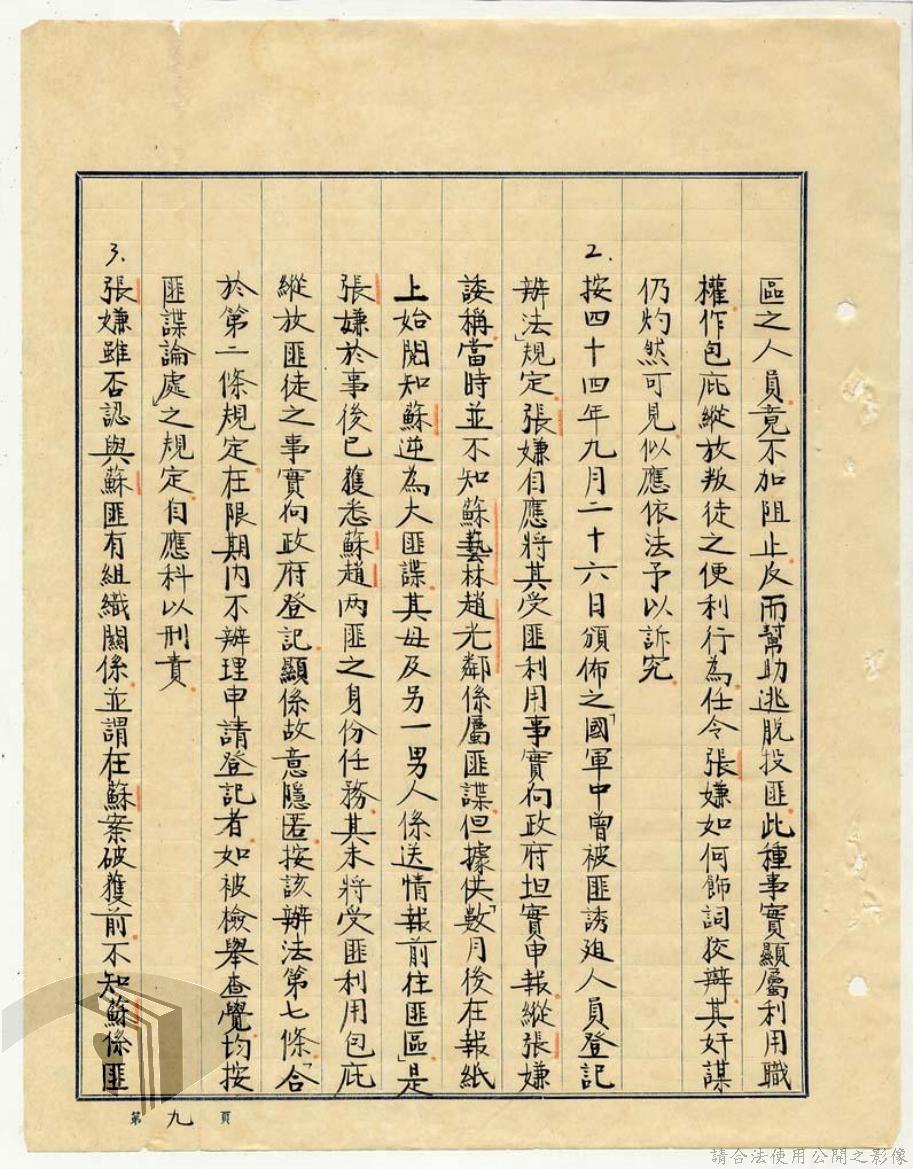 區之人員竟不加阻止反而幫助逃脫投匪此種事實顯屬利用職
權作包庇縱放叛徒之便利行為任令張嫌如何飾詞狡辯其奸謀
仍灼然可見似應依法予以訴究
2.按四十四年九月二十六日頒佈之「國軍中曾被匪誘迫人員登記
辦法」規定張嫌自應將其受匪利用事實向政府坦實申報縱張嫌
諉稱當時並不知蘇藝林趙光鄰係屬匪諜但據供「數月後在報紙
上始閱知蘇逆為大匪諜其母及另一男人係送情報前往匪區」是
張嫌於事後已獲悉蘇趙两匪之身份任務其未將受匪利用包庇
縱放匪徒之事實向政府登記顯係故意隱匿按該辦法第七條「合
於第二條規定在限期內不辦理申請登記者如被檢舉查覺均按
匪諜論處」之規定自應科以刑責
3.張嫌雖否認與蘇匪有組織關係並謂在蘇案破獲前不知蘇係匪
第九頁
請合法使用公開之影像